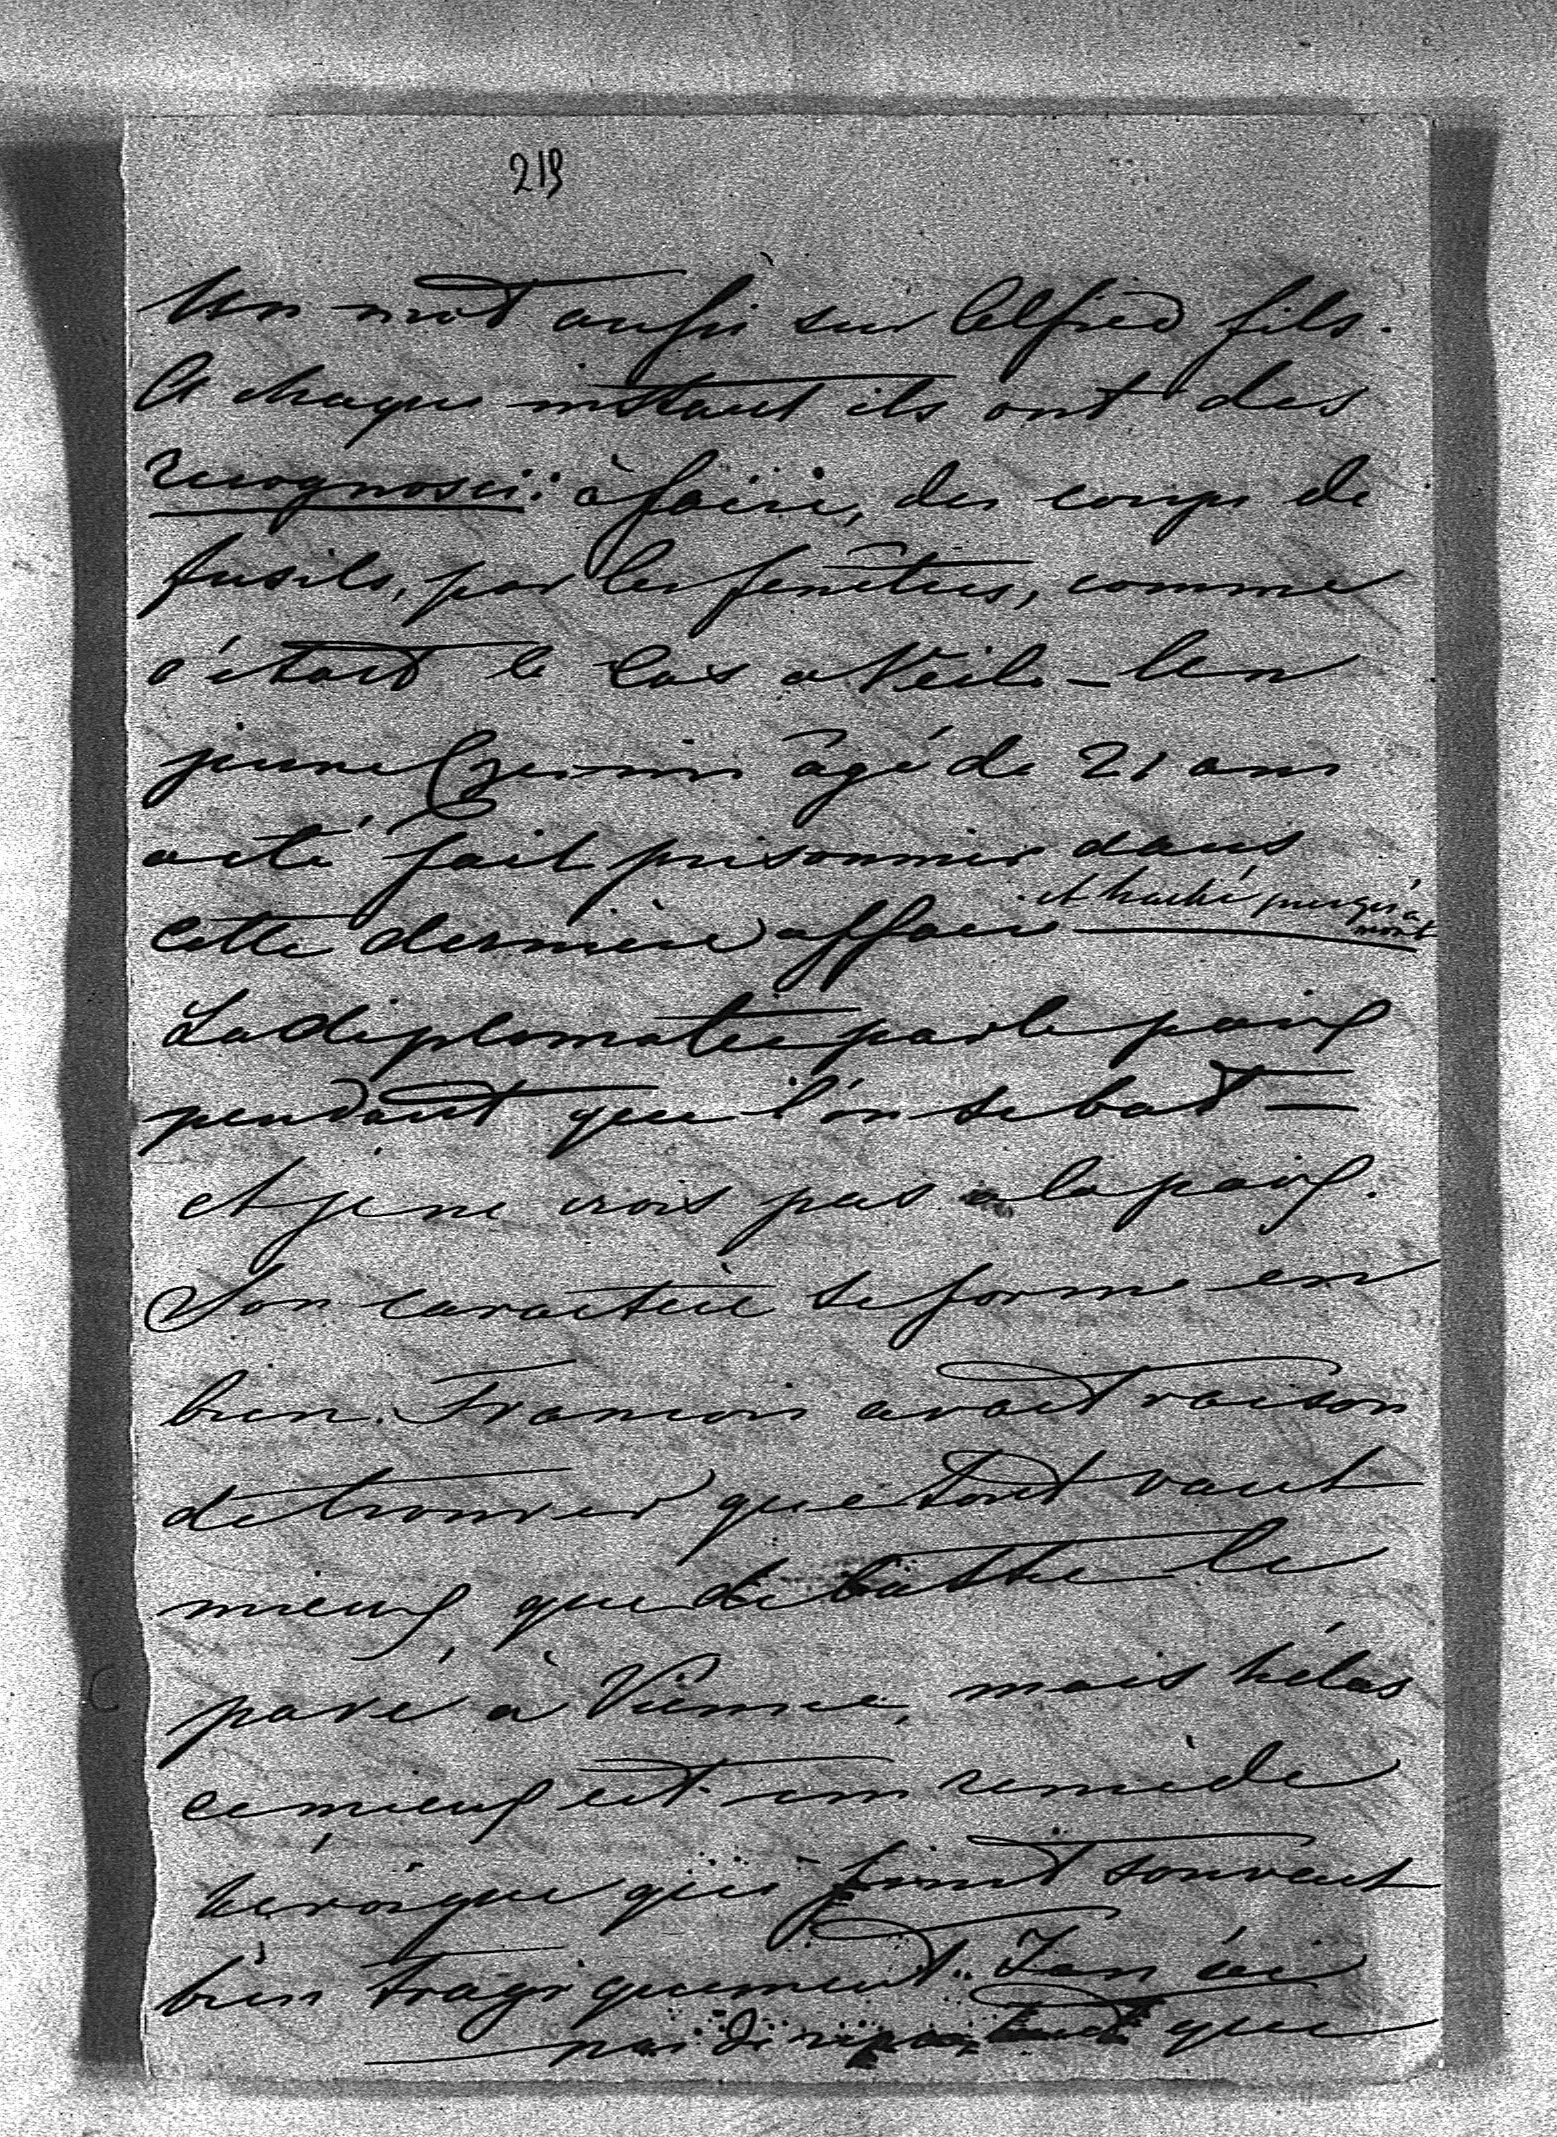 219
Un mot aussi sur Alfred fils.
A chaque instant ils ont des
recognosci: à faire, des coups de
fusils, par les fenêtres, comme
c'était le cas a Veile - Un
jeune Czernin âgé de 21 ans
a été fait prisonnier dans
cette dernière affaire et haché jusqu'à mort
La diplomatie parle paix
pendant que l'on se bat —
et je ne crois pas a la paix.
Son caractère se forme en
bien. François avait raison
de trouver que tout vaut
mieux, que de battre le
pavé à Vienne, mais hélas
ce mieux est un remède
héroique qui finit souvent
bien tragiquement. J'en ai
pas de que